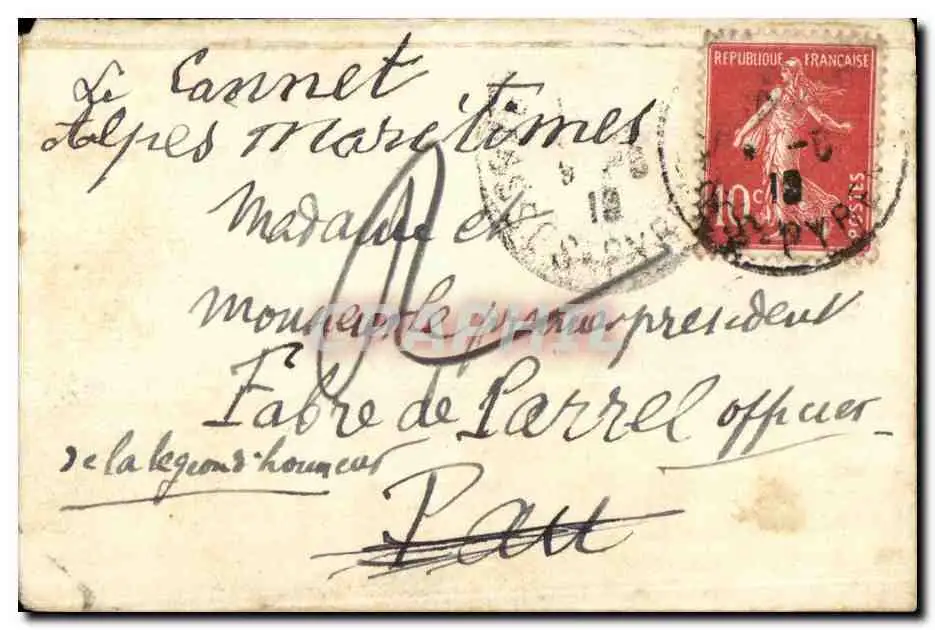 Le Cannet
Alpes Maritimes
Madame et
Monsieur le premier president
Fabre de Parrel officier
de la legion d'honneur
Pau
REPUBLIQUE FRANCAISE
10c
POSTES
18
18
PYR
CPAPHIL